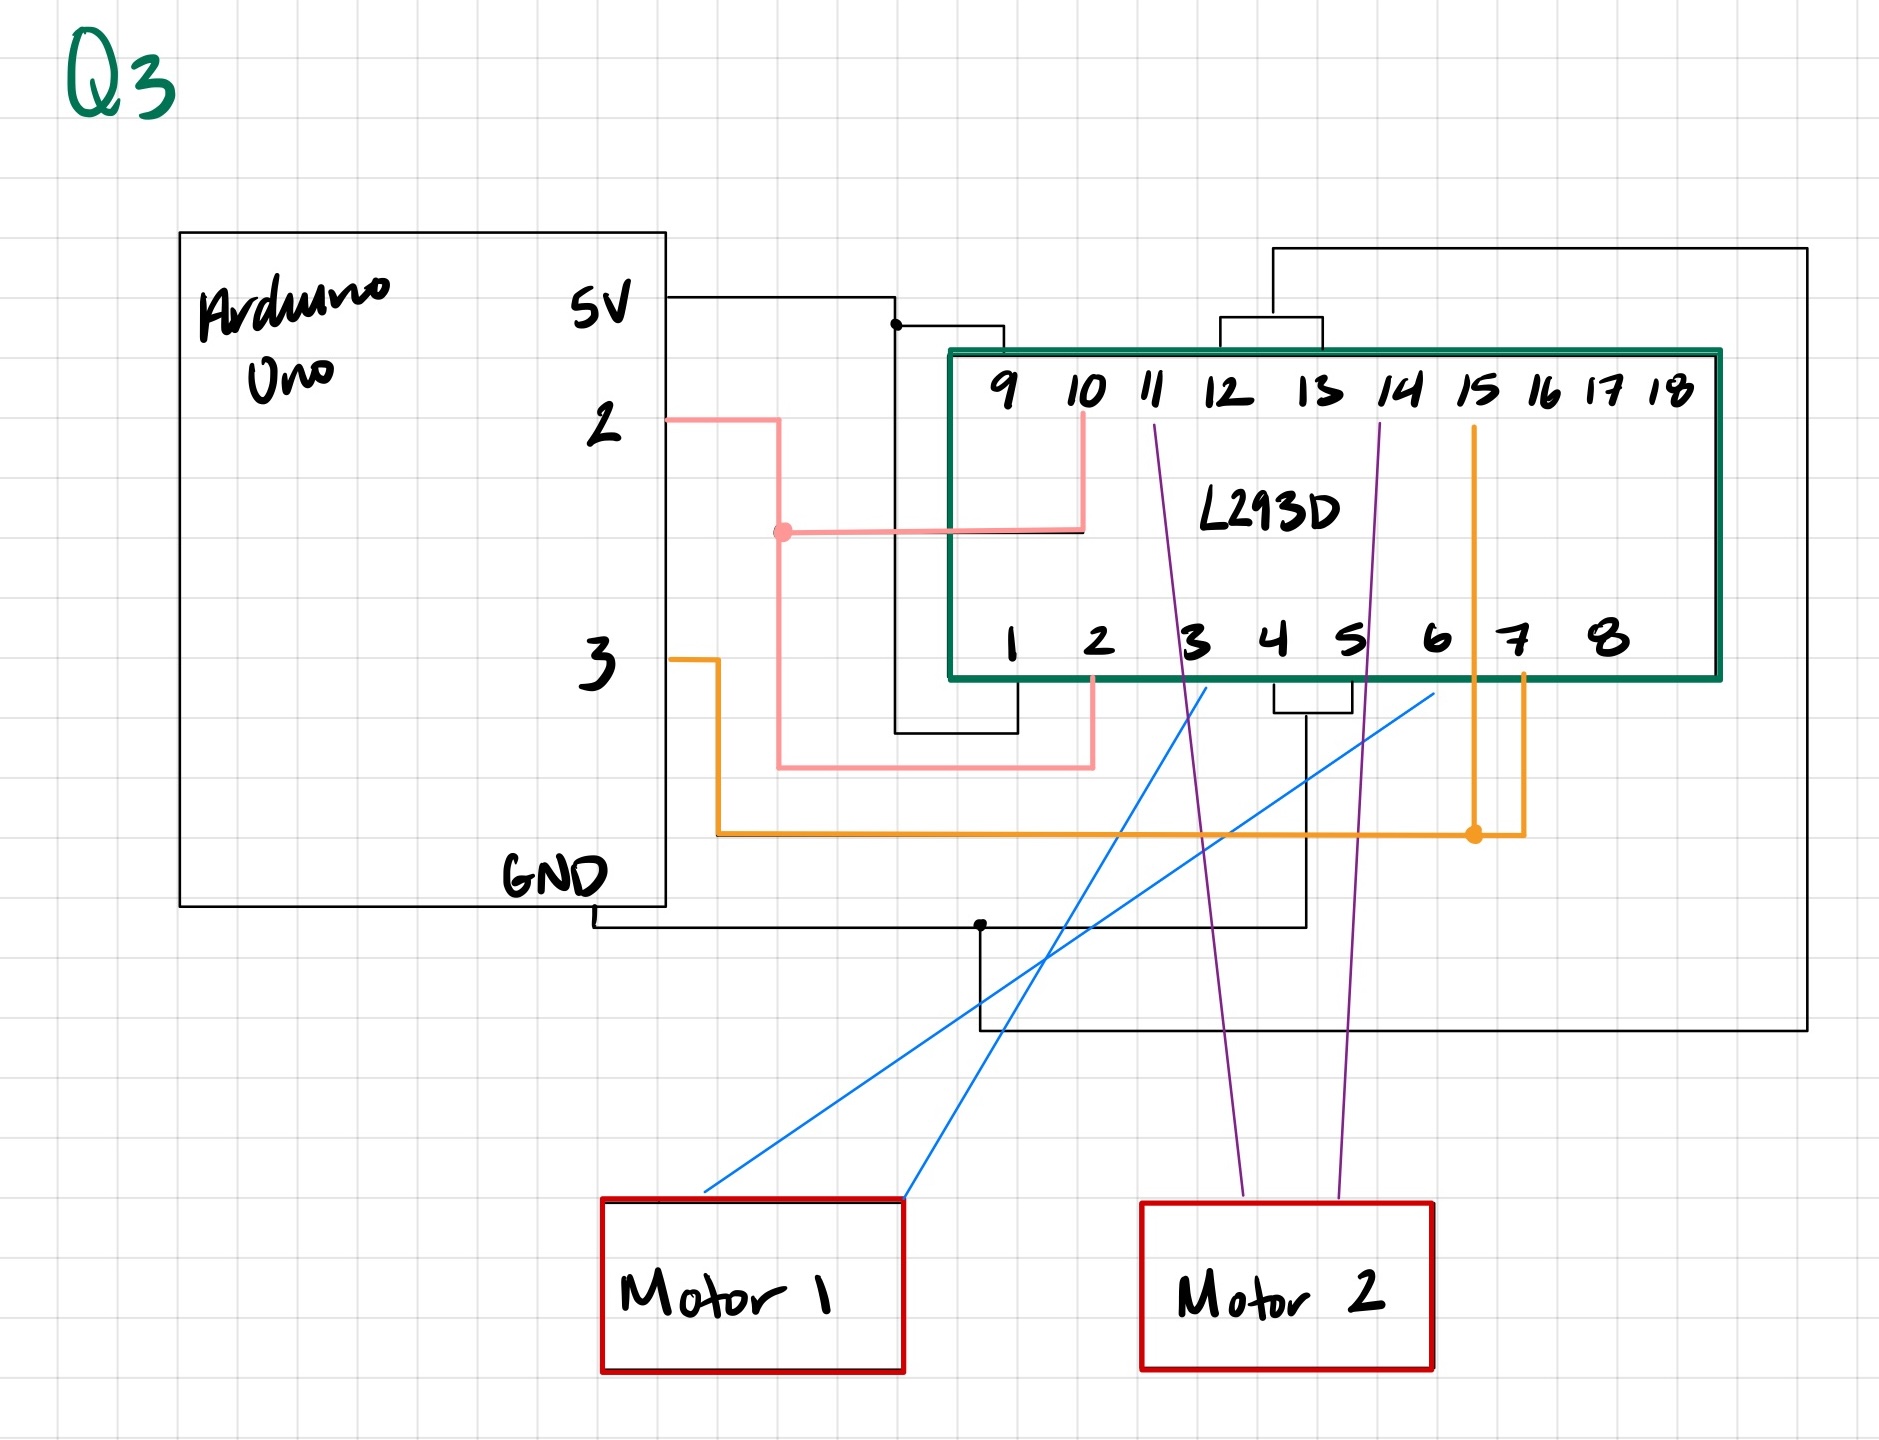 Q3
Arduino
Uno
5V
2
3
GND
9 10 11 12 13 14 15 16 17 18
L293D
1 2 3 4 5 6 7 8
Motor 1
Motor 2